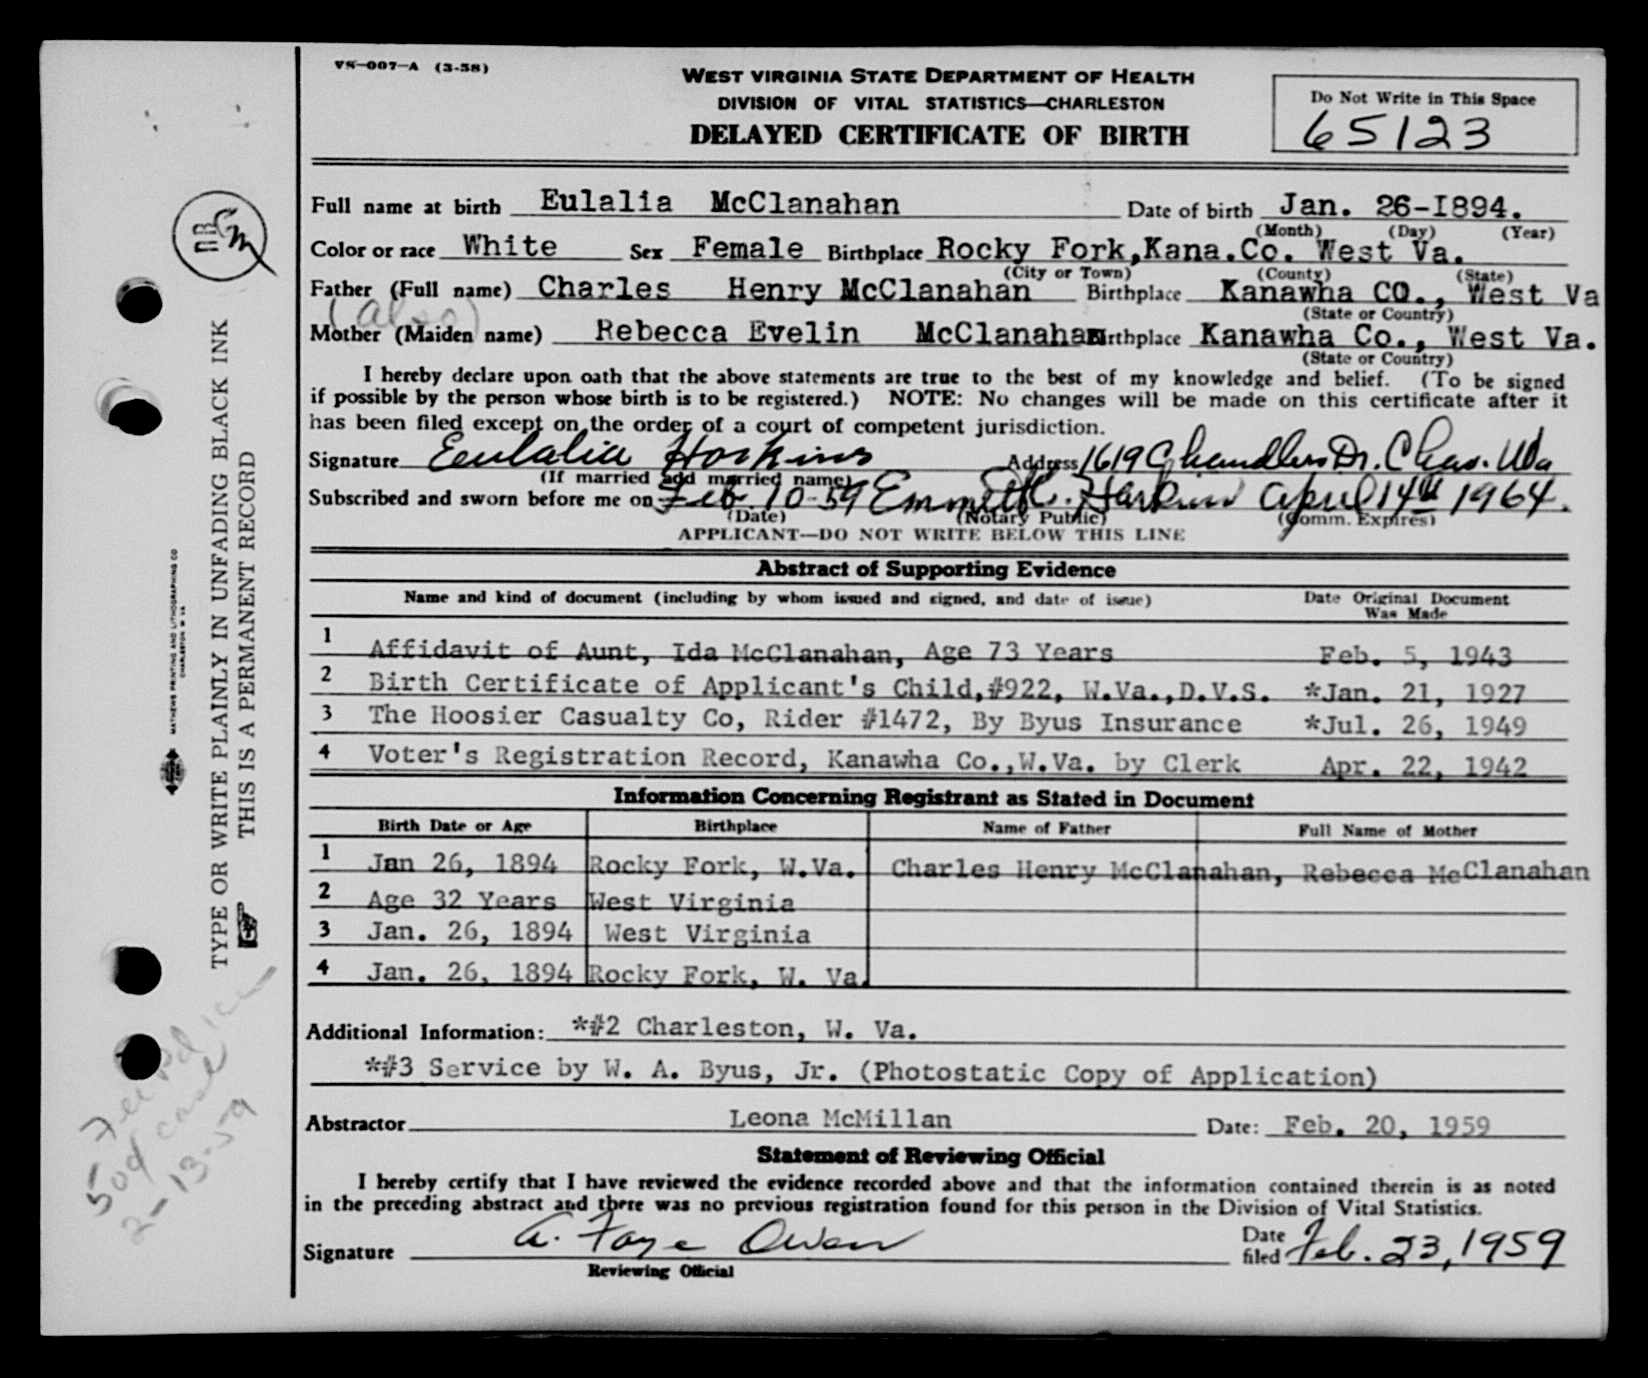 VS-007-A (3-58)
WEST VIRGINIA STATE DEPARTMENT OF HEALTH
DIVISION OF VITAL STATISTICS—CHARLESTON
DELAYED CERTIFICATE OF BIRTH
Do Not Write in This Space
65123
Full name at birth Eulalia McClanahan Date of birth Jan. 26-I894.
(Month) (Day) (Year)
Color or race White Sex Female Birthplace Rocky Fork,Kana.Co. West Va.
(City or Town) (County) (State)
Father (Full name) Charles Henry McClanahan Birthplace Kanawha CO., West Va
(State or Country)
(also)
Mother (Maiden name) Rebecca Evelin McClanahan Birthplace Kanawha Co., West Va.
(State or Country)
I hereby declare upon oath that the above statements are true to the best of my knowledge and belief. (To be signed
if possible by the person whose birth is to be registered.) NOTE: No changes will be made on this certificate after it
has been filed except on the order of a court of competent jurisdiction.
Signature Eulalia Hoskins Address 1619 Chandler Dr. Chas. WVa
(If married add married name)
Subscribed and sworn before me on Feb 10-59 Emmett April 14th 1964.
(Date) (Notary Public) (Comm. Expires)
APPLICANT—DO NOT WRITE BELOW THIS LINE
Abstract of Supporting Evidence
Name and kind of document (including by whom issued and signed, and date of issue) Date Original Document
Was Made
1 Affidavit of Aunt, Ida McClanahan, Age 73 Years Feb. 5, 1943
2 Birth Certificate of Applicant's Child,#922, W.Va.,D.V.S. *Jan. 21, 1927
3 The Hoosier Casualty Co, Rider #1472, By Byus Insurance *Jul. 26, 1949
4 Voter's Registration Record, Kanawha Co.,W.Va. by Clerk Apr. 22, 1942
Information Concerning Registrant as Stated in Document
Birth Date or Age Birthplace Name of Father Full Name of Mother
1 Jan 26, 1894 Rocky Fork, W.Va. Charles Henry McClanahan, Rebecca McClanahan
2 Age 32 Years West Virginia
3 Jan. 26, 1894 West Virginia
4 Jan. 26, 1894 Rocky Fork, W. Va.
Additional Information: *#2 Charleston, W. Va.
*#3 Service by W. A. Byus, Jr. (Photostatic Copy of Application)
Abstractor Leona McMillan Date: Feb. 20, 1959
Statement of Reviewing Official
I hereby certify that I have reviewed the evidence recorded above and that the information contained therein is as noted
in the preceding abstract and there was no previous registration found for this person in the Division of Vital Statistics.
Signature A. Faye Owen Date filed Feb. 23, 1959
Reviewing Official
TYPE OR WRITE PLAINLY IN UNFADING BLACK INK
THIS IS A PERMANENT RECORD
MATHEWS PRINTING AND LITHOGRAPHING CO
CHARLESTON W VA
50¢
2-13-59